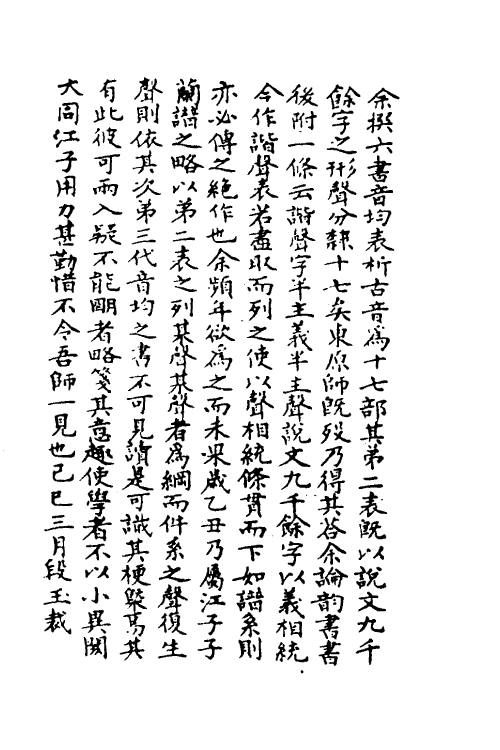 余撰六書音均表析古音爲十七部其第二表旣以說文九千
餘字之形聲分隸十七矣東原師旣歿乃得其荅余論韵書書
後附一條云諧聲字半主義半主聲說文九千餘字以義相統
今作諧聲表若盡取而列之使以聲相統條貫而下如譜系則
亦必傳之絕作也余頻年欲爲之而未果歲乙丑乃屬江子子
蘭譜之略以第二表之列某聲某聲者爲綱而件系之聲復生
聲則依其次弟三代音均之書不可見讀是可識其梗槩焉其
有此彼可兩入疑不能朙者略箋其意趣使學者不以小異閡
大同江子用力甚勤惜不令吾師一見也己巳三月段玉裁